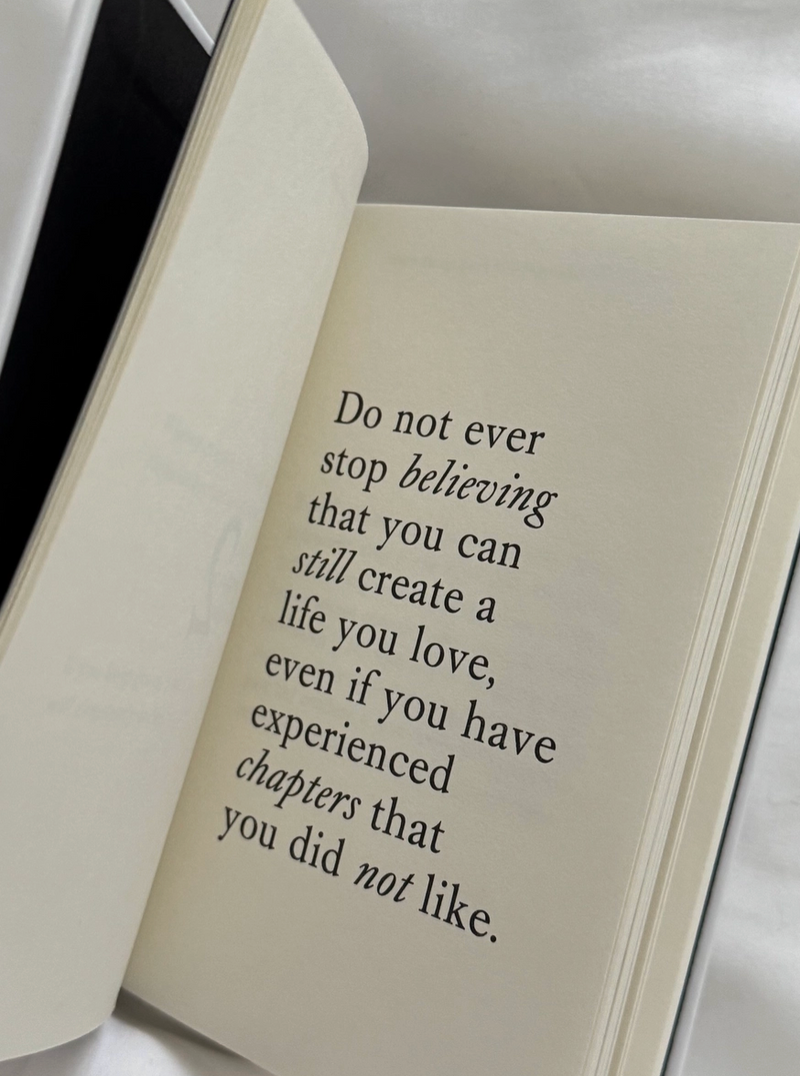 Do not ever
stop believing
that you can
still create a
life you love,
even if you have
experienced
chapters that
you did not like.